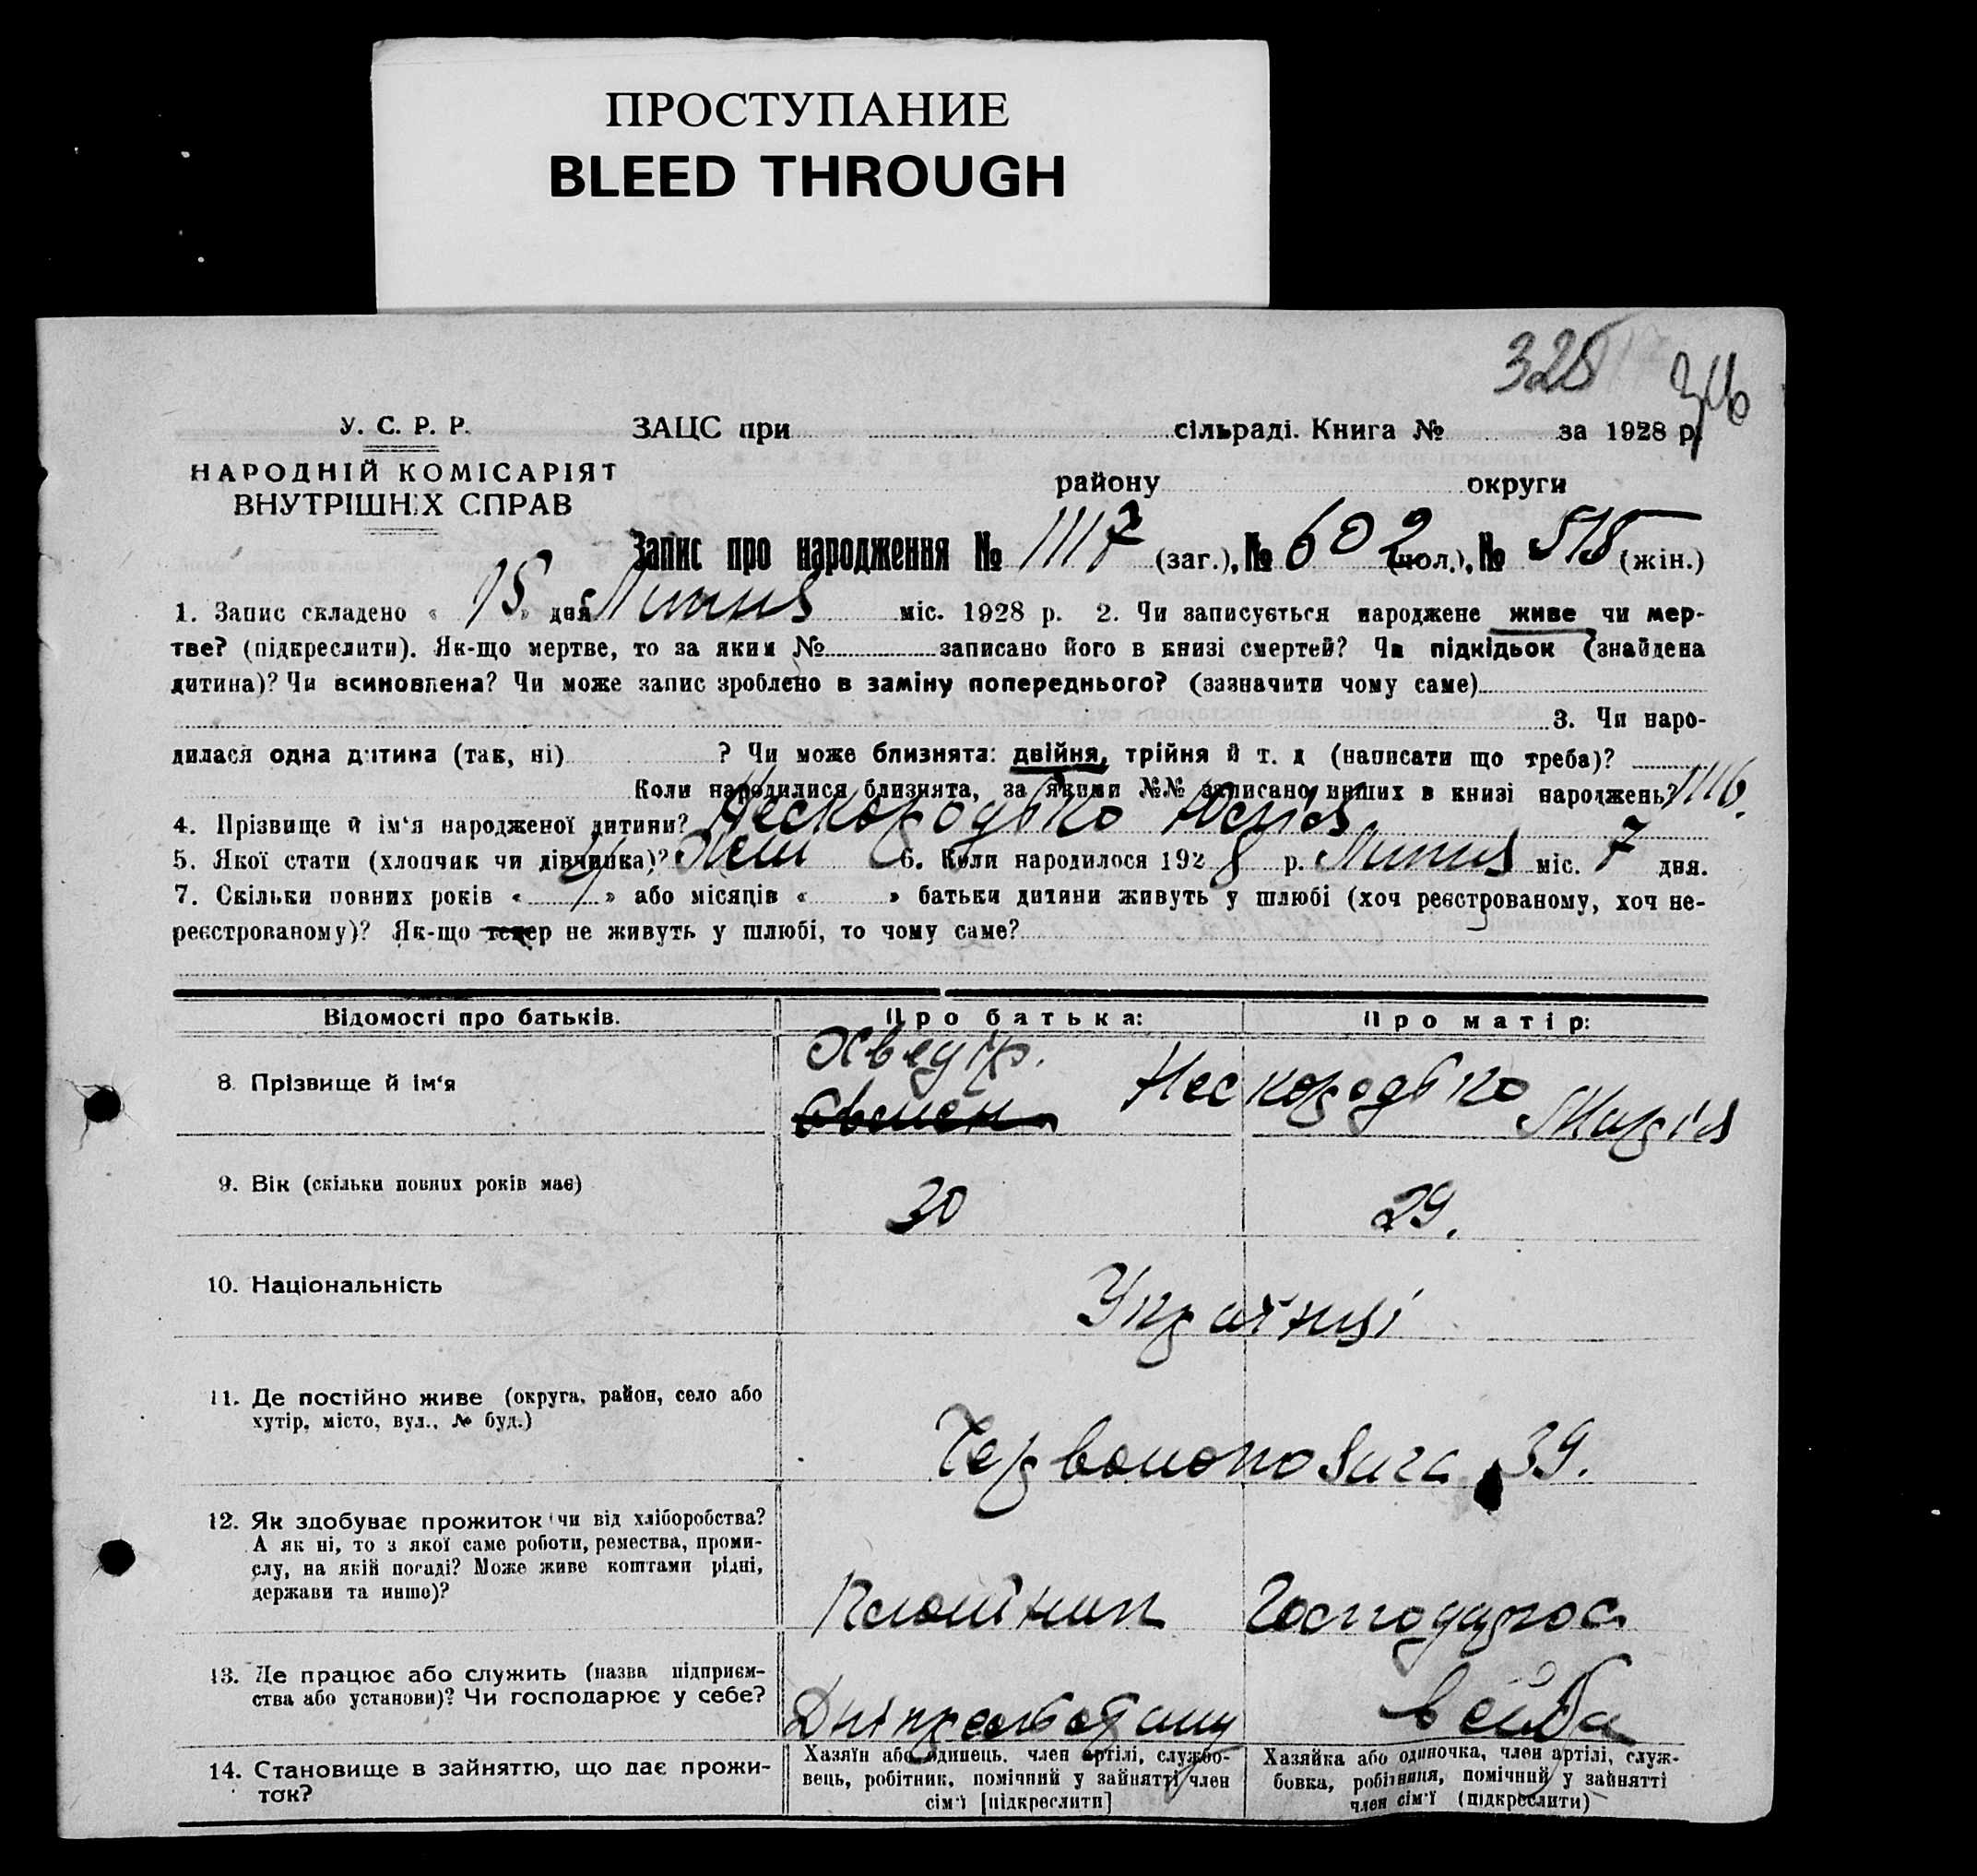 ПРОСТУПАНИЕ
BLEED THROUGH
325 346
У. С. Р. Р.
НАРОДНІЙ КОМІСАРІЯТ
ВНУТРІШНІХ СПРАВ
ЗАЦС при сільраді. Книга № за 1928 р.
району округи
Запис про народження № 1117 (заг.), № 602 (чол.), № 515 (жін.)
1. Запис складено « 15 » дня Липня міс. 1928 р. 2. Чи записується народжене живе чи мер-
тве? (підкреслити). Як-що мертве, то за яким № записано його в книзі смертей? Чи підкідьок (знайдена
дитина)? Чи всиновлена? Чи може запис зроблено в заміну попереднього? (зазначити чому саме)
3. Чи наро-
дилася одна дитина (так, ні) ? Чи може близнята: двійня, трійня й т. д (написати що треба)?
Коли народилися близнята, за якими №№ записано инших в книзі народжень? 1116.
4. Прізвище й ім‘я народженої дитини? Нескородько Юлія
5. Якої стати (хлопчик чи дівчинка)? Жен 6. Коли народилося 1928 р. Липня міс. 7 дня.
7. Скільки повних років « » або місяців « » батьки дитини живуть у шлюбі (хоч реєстрованому, хоч не-
реєстрованому)? Як-що тепер не живуть у шлюбі, то чому саме?
Відомості про батьків. Про батька: Про матір:
8. Прізвище й ім‘я Нескородько Марія
9. Вік (скільки повних років має) 30 29.
10. Національність Українці
11. Де постійно живе (округа, район, село або
хутір, місто, вул., № буд.)
39.
12. Як здобуває прожиток (чи від хліборобства?
А як ні, то з якої саме роботи, ремества, проми-
слу, на якій посаді? Може живе коштами рідні,
держави та инше)?
Господарює
13. Де працює або служить (назва підприєм-
ства або установи)? Чи господарює у себе?
в себе
14. Становище в зайняттю, що дає прожи-
ток?
Хазяїн або одинець, член артілі, службо-
вець, робітник, помічний у зайнятті член
сім‘ї [підкреслити]
Хазяйка або одиночка, член артілі, служ-
бовка, робітниця, помічний у зайнятті
член сім‘ї (підкреслити)